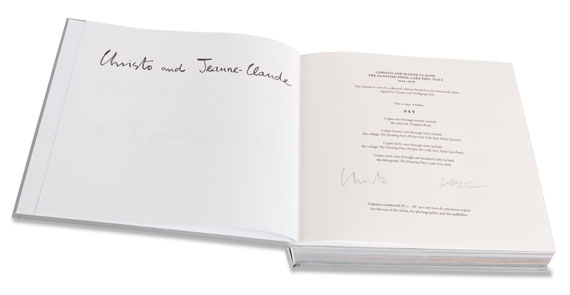 Christo and Jeanne-Claude
CHRISTO AND JEANNE-CLAUDE
THE FLOATING PIERS, LAKE ISEO, ITALY
2014–2016
This volume is one of a collector's edition limited to one thousand copies
signed by Christo and Wolfgang Volz
This is copy number
949
Copies one through twenty include
Copies twenty-one through sixty include
the collage The Floating Piers (Project for Lake Iseo, Italy)
Copies sixty-one through one hundred sixty include
the lithograph The Floating Piers, Lake Iseo, Italy
Christo
Volumes numbered HC 1 – HC are hors de commerce copies
for the use of the artists, the photographer, and the publisher.